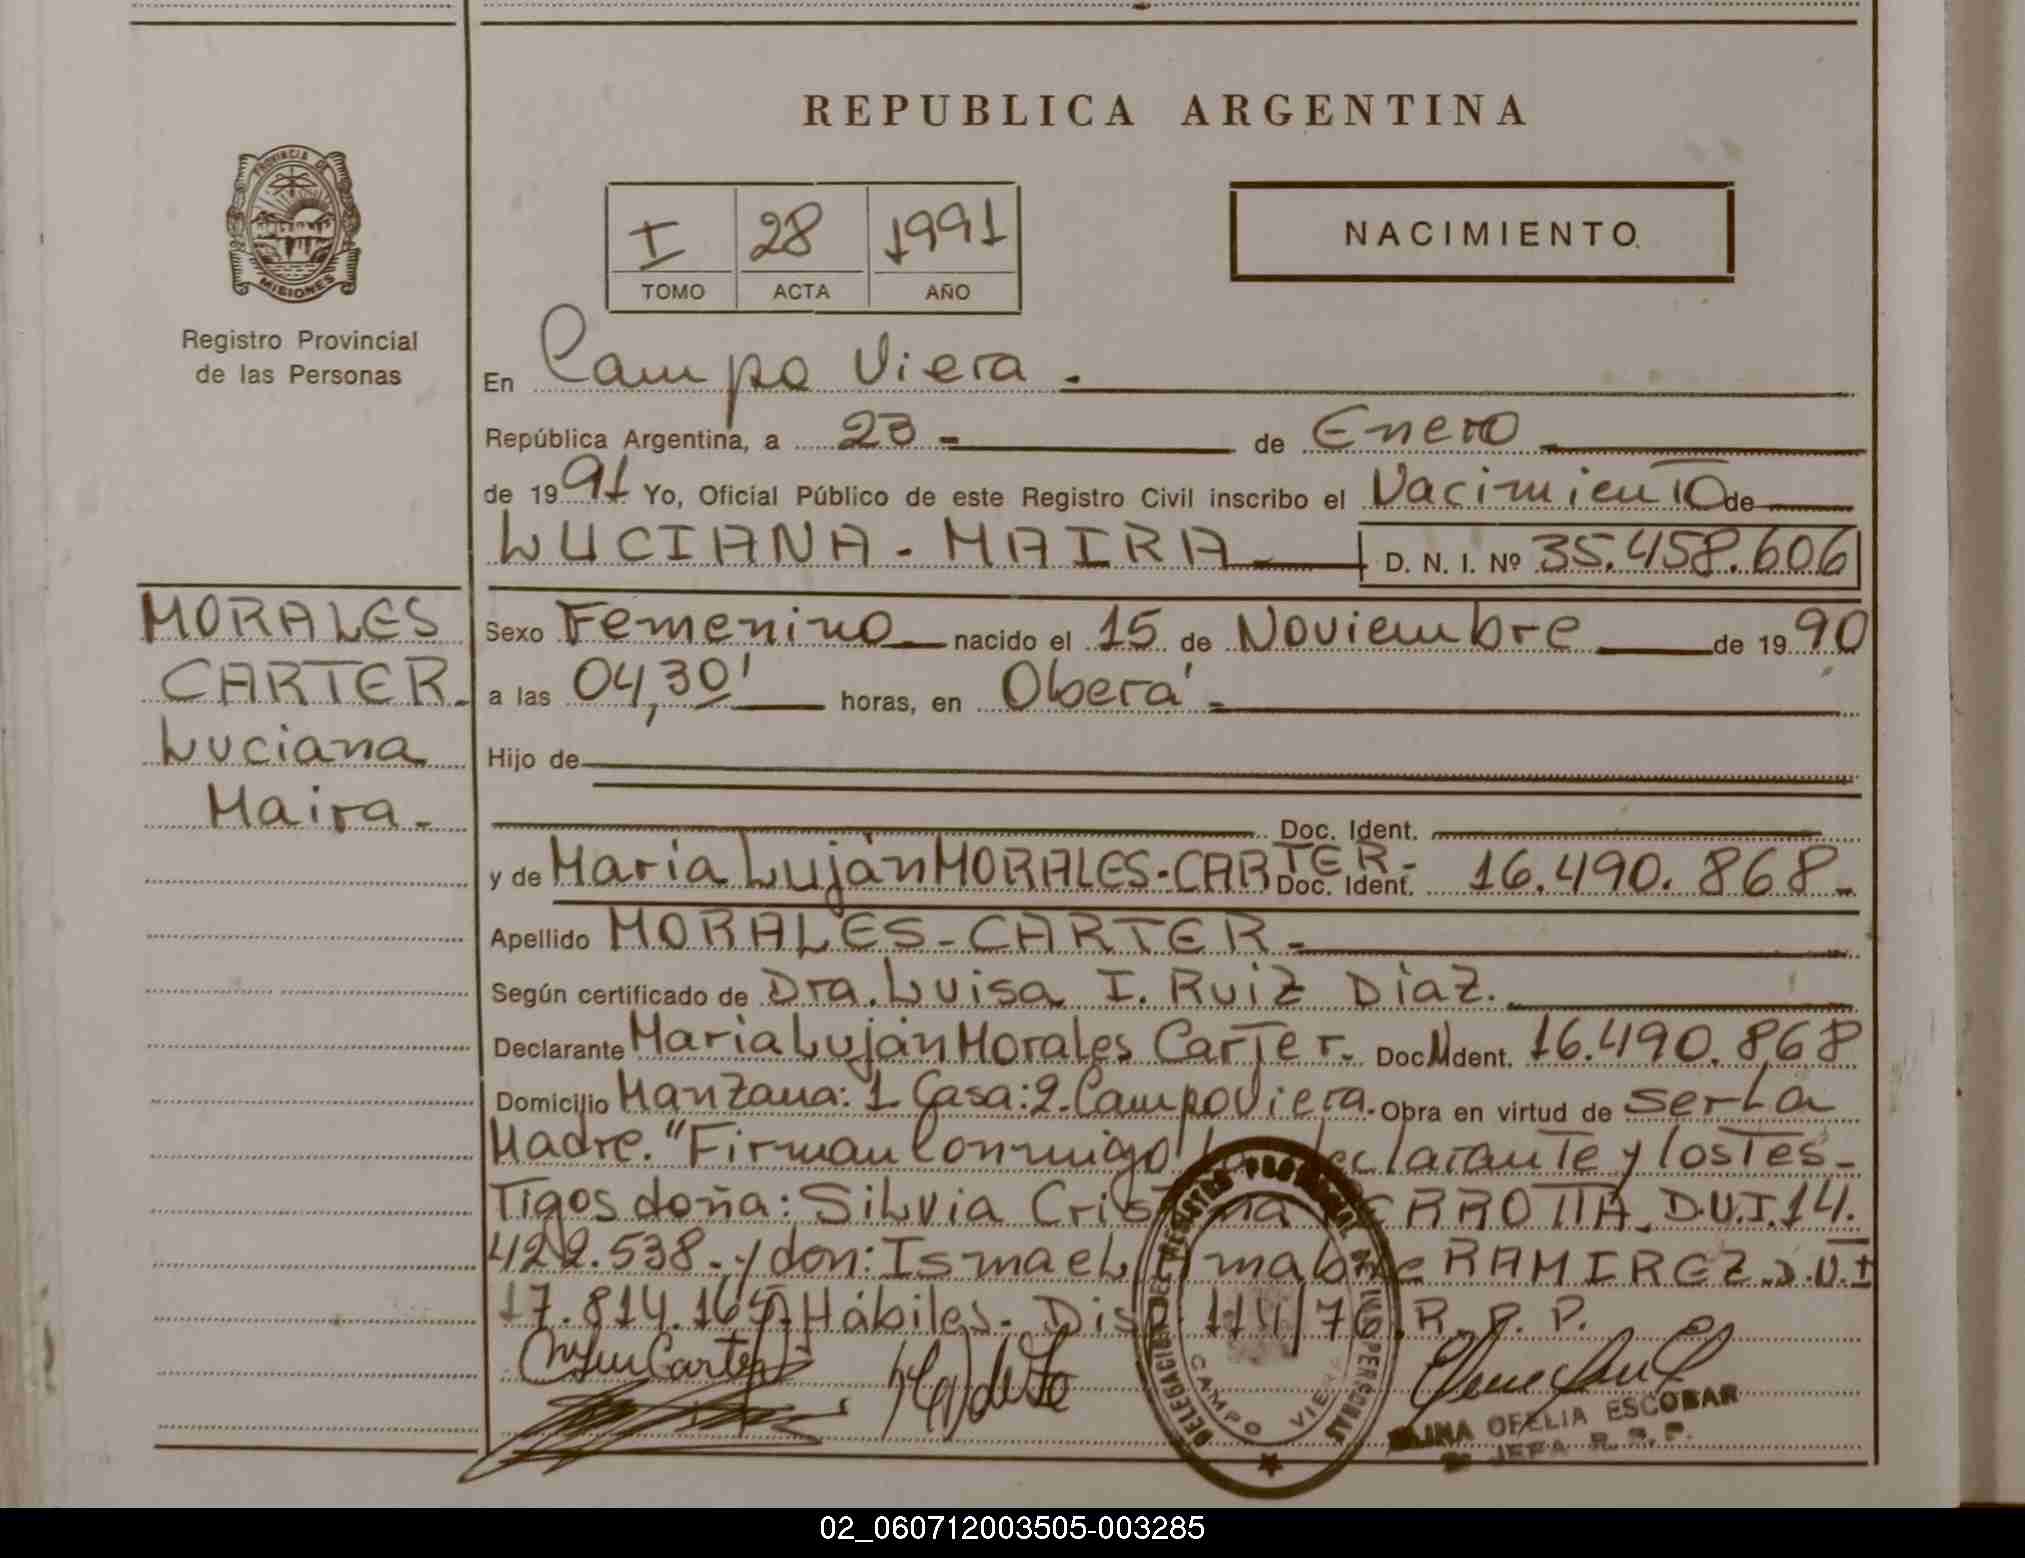 REPUBLICA ARGENTINA
PROVINCIA DE
MISIONES
Registro Provincial
de las Personas
I 28 1991
TOMO ACTA AÑO
NACIMIENTO
En Campo Viera.
República Argentina, a 23 - de Enero
de 1991 Yo, Oficial Público de este Registro Civil inscribo el Nacimiento de
LUCIANA - MAIRA D. N. I. Nº 35.458.606
MORALES
CARTER.
Luciana
Maira.
Sexo Femenino nacido el 15 de Noviembre de 1990
a las 04,30' horas, en Oberá
Hijo de
Doc. Ident.
y de María Luján MORALES-CARTER- Doc. Ident. 16.490.868
Apellido MORALES-CARTER.
Según certificado de Dra. Luisa I. Ruiz Díaz.
Declarante María Luján Morales Carter. Doc. Ident. 16.490.868
Domicilio Manzana: 1 Casa: 2. Campo Viera. Obra en virtud de ser la
Madre. "Firman conmigo la declarante y los tes-
tigos doña: Silvia Cristina D.U.I. 14.
422.538. y don: Ismael RAMIREZ D.N.I
17.814. Hábiles. Disp. 111/76 R. P. P.
DELEGACION REGISTRO PROVINCIAL DE LAS PERSONAS
CAMPO VIERA
ELINA OFELIA ESCOBAR
JEFA R. P. P.
02_060712003505-003285